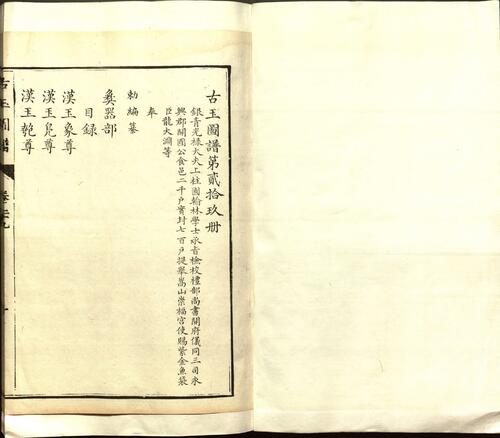 古玉圖譜第貳拾玖冊
銀青光祿大夫上柱國翰林學士承旨檢校禮部尚書開府儀同三司永
興郡開國公食邑二千戶實封七百戶提舉嵩山崇福宮使賜紫金魚袋
臣龍大淵等
奉
勅編纂
彝器部
目録
漢玉象尊
漢玉兕尊
漢玉乾尊
古玉圖譜